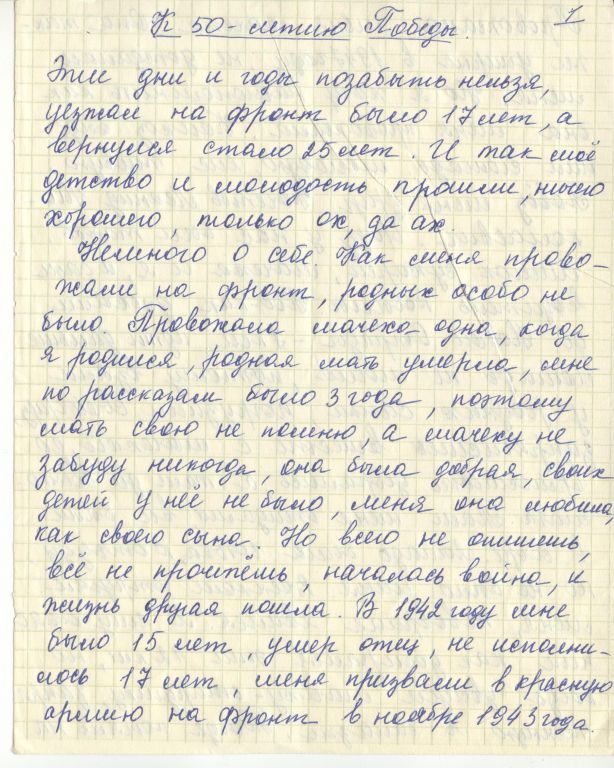 1
К 50-летию Победы.
Эти дни и годы позабыть нельзя,
уезжал на фронт было 17 лет, а
вернулся стало 25 лет. И так моё
детство и молодость прошли, ничего
хорошего, только ох, да ах.
Немного о себе. Как меня прово-
жали на фронт, родных особо не
было. Провожала мачеха одна, когда
я родился, родная мать умерла, мне
по рассказам было 3 года, поэтому
мать свою не помню, а мачеху не
забуду никогда, она была добрая, своих
детей у неё не было, меня она любила,
как своего сына. Но всего не опишешь,
всё не прочтёшь, началась война, и
жизнь другая пошла. В 1942 году мне
было 15 лет, умер отец, не исполни-
лось 17 лет, меня призвали в красную
армию на фронт в ноябре 1943 года.